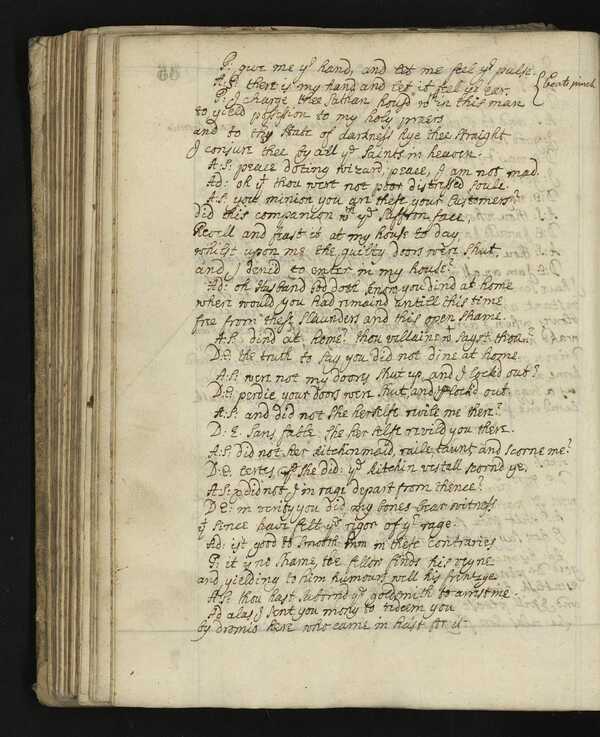 P: give me yr hand, and let me feel yr pulse.
A:S: there is my hand and let it feel yr ear. { beats pinch
P: I charge thee Sathan hous'd wthin this man
to yield possession to my holy praiers
and to thy state of darkness hye thee straight
I conjure thee by all ye Saints in heaven.
A:S: peace doting wizard, peace, I am not mad.
Ad: oh yt thou wert not poor distressed soule.
A:S: you minion you are these your Customers?
did this companion wth ye saffron face,
Revell and feast it at my house to day
whilst upon me the guilty doors were shut,
and I denied to enter in my house?
Ad: oh Husband God doth know you dind at home
where would you had remaind untill this time
free from these Slaunders and this open Shame.
A:S: dind at home? thou villaine wt sayst thou?
D:E: the truth to say you did not dine at home.
A:S: were not my doors shut up, and I lockd out?
D:E: perdie your doors were shut, and lockd out.
A:S: and did not She herselfe revile me there?
D:E: Sans fable She her selfe revild you there.
A:S: did not her kitchinmaid, raile, taunt, and scorne me?
D:E: certes, She did: ye kitchin vestall scornd ye,
A:S: did not I in rage depart from thence?
D:E: in verity you did, my bones bear witness
yt since have felt ye rigor of yr rage.
Ad: ist good to smooth him in these Contraries
P: it is no Shame, the fellow finds his veyne
and yielding to him humours well his frenzye.
A:S: thou hast subornd ye goldsmith to arrest me.
Ad alas, I sent you mony to redeem you
by dromio here who came in hast for it.